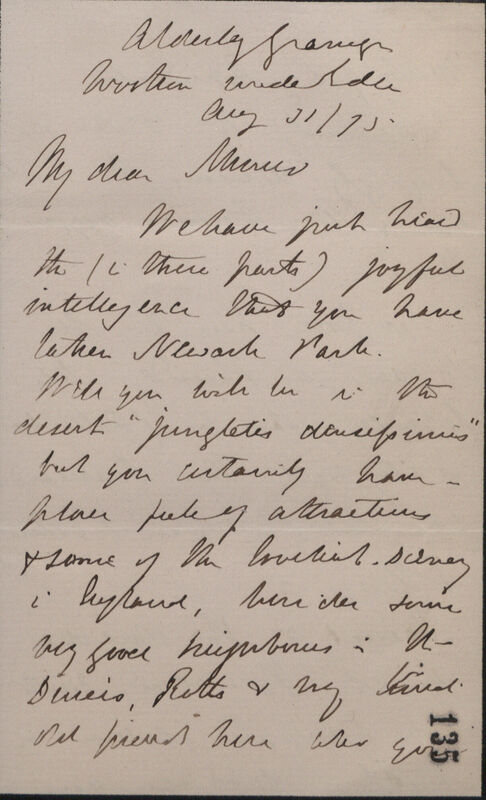 Alderley Grange
Wotton under Edge
Aug 31/75
My dear
We have just heard
the (in these parts) joyful
intelligence that you have
taken Newark Park.
Well you will be in the
desert "jungletis densissimis"
but you certainly have a
place full of attractions
& some of the loveliest scenery
in England, besides some
very good neighbours in the
& my kind
old friends here who you
135